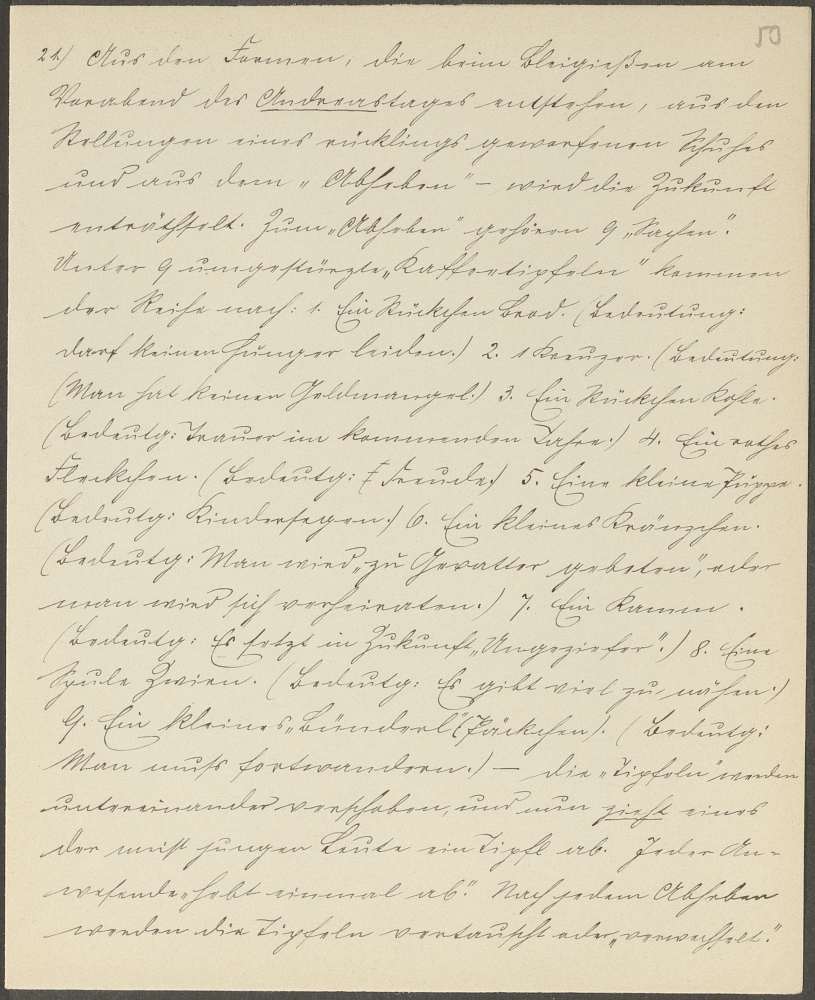 50
21) Aus den Formen, die beim Bleigießen am
Vorabend des Andreastages entstehen, aus den
Stellungen eines rücklings geworfenen Schuhes
und aus dem „Abheben" – wird die Zukunft
enträthselt. Zum „Abheben" gehören 9 „Sachen".
Unter 9 umgestürzte „Kaffeetipfeln" kommen
der Reihe nach: 1. Ein Stückchen Brod. (Bedeutung:
darf keinen Hunger leiden.) 2. 1 Kreuzer. (Bedeutung:
(Man hat keinen Geldmangel.) 3. Ein Stückchen Kohle.
(Bedeutg: Trauer im kommenden Jahre.) 4. Ein rothes
Fleckchen. (Bedeutg: Freude.) 5. Eine kleine Puppe.
(Bedeutg: Kindersegen.) 6. Ein kleines Kränzchen.
(Bedeutg: Man wird „zu Gevatter gebeten", oder
man wird sich verheiraten.) 7. Ein Kamm.
(Bedeutg: Es setzt in Zukunft „Ungeziefer".) 8. Eine
Spule Zwirn. (Bedeutg: Es gibt viel zu nähen.)
9. Ein kleines „Bünderl" (Päckchen). (Bedeutg:
Man muß fortwandern.) – Die „Tipfeln" werden
untereinander verschoben, und nun zieht eines
der meist jungen Leute ein Tipfl ab. Jeder An-
wesende „hebt einmal ab". Nach jedem Abheben
werden die Tipfeln vertauscht oder „verwechselt."